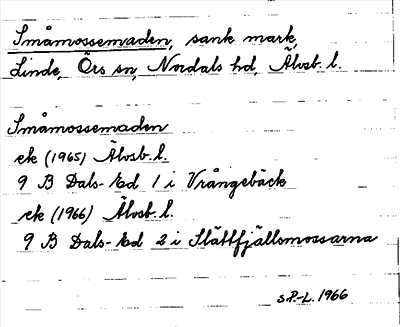 Småmossemaden, sank mark,
Linde, Örs sn, Nordals hd, Älvsb. l.
Småmossemaden
ek (1965) Älvsb. l.
9 B Dals-Ed 1 i Vrångebäck
ek (1966) Älvsb. l.
9 B Dals-Ed 2 i Slättfjällsmossarna
S.P-L. 1966